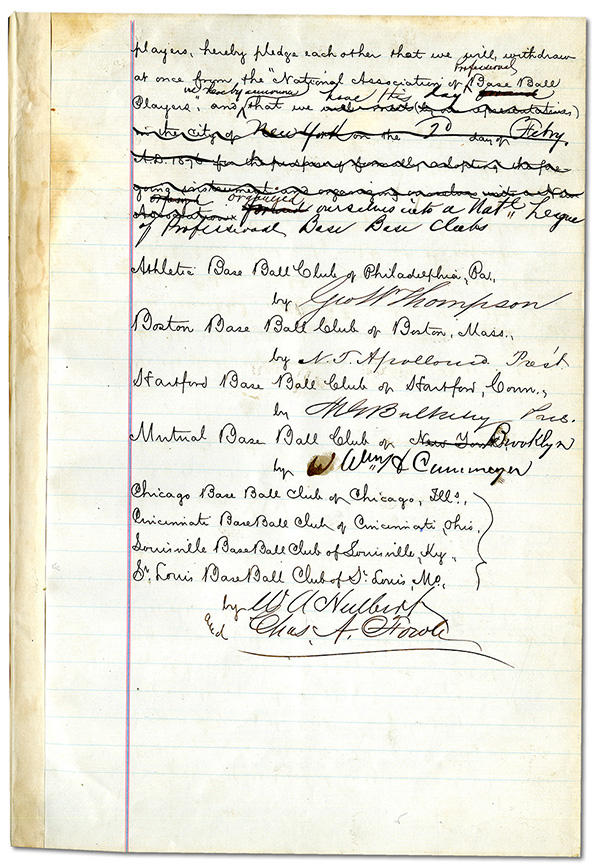 players, hereby pledge each other that we will, withdraw
Professional
at once from, the "National Association of Base Ball
we hereby announce have this day
Players" and that we
in the city of New York on the 2d day of Feby.
A.D. 1876 for the purpose of formally adopting the fore
going instrument and organizing
organized
ourselves into a Natl. League
of Professional Base Base Clubs
Athletic Base Ball Club of Philadelphia, Pa.,
by Geo W Thompson
Boston Base Ball Club of Boston, Mass.,
by N. T. Apollonio Pres't
Hartford Base Ball Club of Hartford, Conn.,
by M G Bulkeley Pres.
Mutual Base Ball Club of New York Brooklyn
by Wm H Cammeyer
Chicago Base Ball Club of Chicago, Ills.,
Cincinnati Base Ball Club of Cincinnati, Ohio,
Louisville Base Ball Club of Louisville, Ky.,
St. Louis Base Ball Club of St. Louis, Mo.,
by W A Hulbert
and Chas. A. Fowle